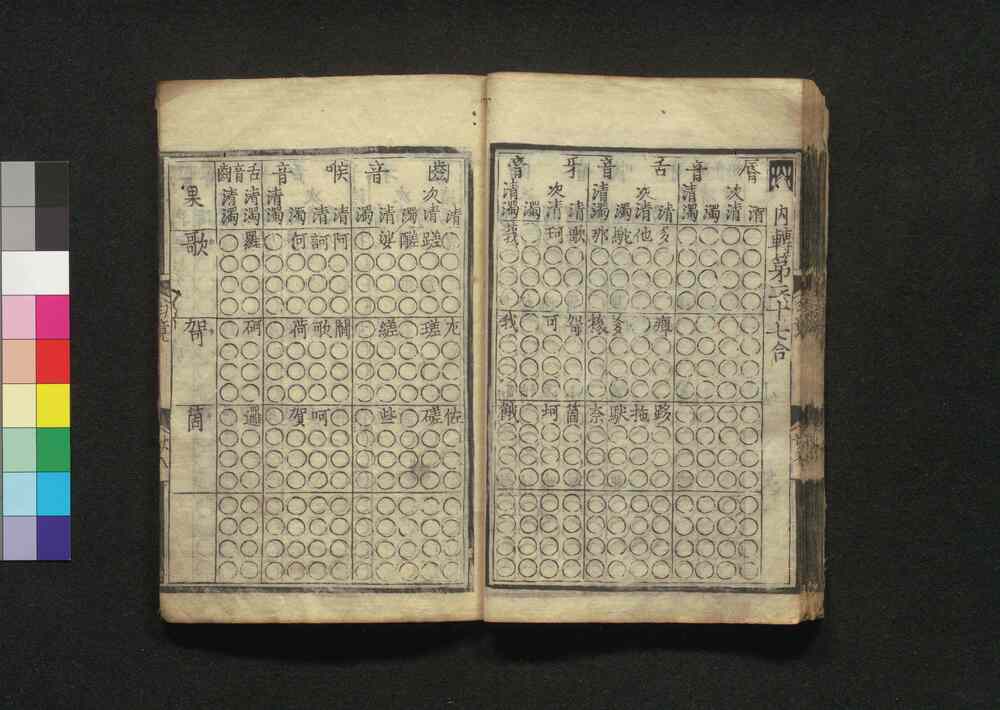 内轉第二十七合
脣音
清
次清
濁
清濁
舌音
清 多 癉 跢
次清 他 拖
濁 駞 爹 馱
清濁 那 橠 奈
牙音
清 歌 哿 箇
次清 珂 可 坷
濁
清濁 莪 我 餓
齒音
清 左 佐
次清 蹉 瑳 磋
濁 醝
清 娑 縒 些
濁
喉音
清 阿 閜
清 訶 呵
濁 何 荷 賀
清濁
舌音齒
清濁 羅 砢 邏
清濁
果 歌 哿 箇